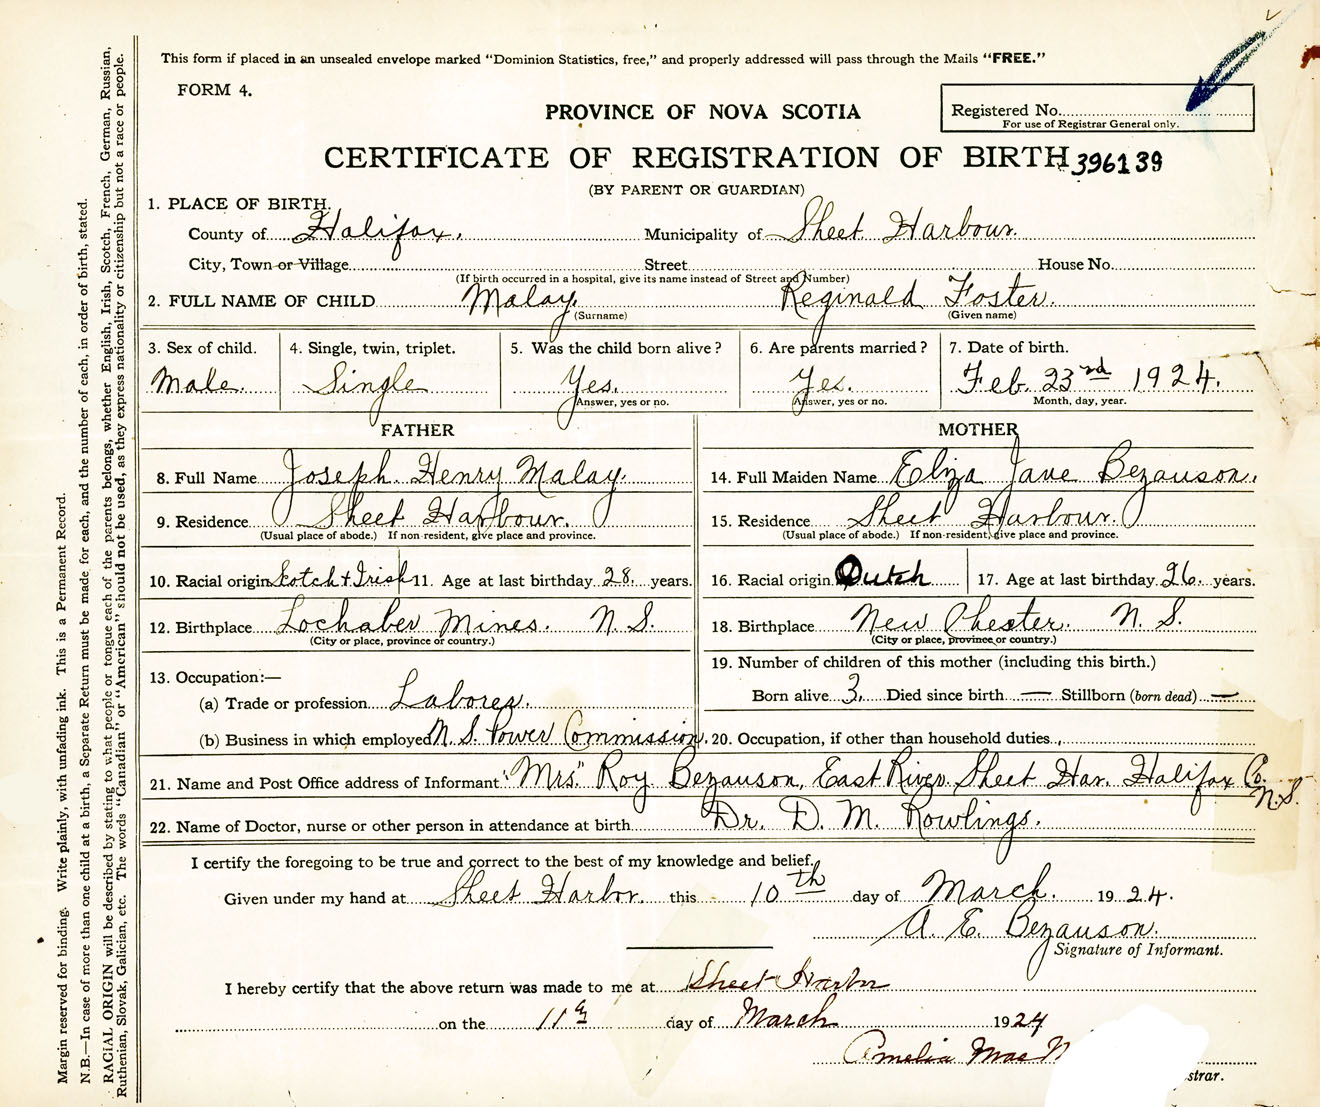 This form if placed in an unsealed envelope marked "Dominion Statistics, free," and properly addressed will pass through the Mails "FREE."
FORM 4.
PROVINCE OF NOVA SCOTIA
Registered No.
For use of Registrar General only.
CERTIFICATE OF REGISTRATION OF BIRTH 396139
(BY PARENT OR GUARDIAN)
1. PLACE OF BIRTH.
County of Halifax. Municipality of Sheet Harbour.
City, Town or Village Street House No.
(If birth occurred in a hospital, give its name instead of Street and Number)
2. FULL NAME OF CHILD Malay. Reginald Foster.
(Surname) (Given name)
3. Sex of child. 4. Single, twin, triplet. 5. Was the child born alive? 6. Are parents married? 7. Date of birth.
Male. Single Yes. Yes. Feb. 23rd 1924.
Answer, yes or no. Answer, yes or no. Month, day, year.
FATHER MOTHER
8. Full Name Joseph Henry Malay. 14. Full Maiden Name Eliza Jane Bezauson.
9. Residence Sheet Harbour. 15. Residence Sheet Harbour.
(Usual place of abode.) If non-resident, give place and province. (Usual place of abode.) If non-resident, give place and province.
10. Racial origin Scotch + Irish 11. Age at last birthday 28. years. 16. Racial origin Dutch 17. Age at last birthday 26. years.
12. Birthplace Lochaber Mines. N.S. 18. Birthplace New Chester. N.S.
(City or place, province or country.) (City or place, province or country.)
13. Occupation:— 19. Number of children of this mother (including this birth.)
(a) Trade or profession Laborer. Born alive 3. Died since birth — Stillborn (born dead) —
(b) Business in which employed N.S. Power Commission. 20. Occupation, if other than household duties.
21. Name and Post Office address of Informant "Mrs." Roy Bezauson, East River Sheet Har. Halifax Co. N.S.
22. Name of Doctor, nurse or other person in attendance at birth Dr. D. M. Rowlings.
I certify the foregoing to be true and correct to the best of my knowledge and belief.
Given under my hand at Sheet Harbor. this 10th day of March. 1924.
A. E. Bezauson.
Signature of Informant.
I hereby certify that the above return was made to me at Sheet Harbor
on the 11th day of March 1924
Amelia Mac
strar.
Margin reserved for binding. Write plainly, with unfading ink. This is a Permanent Record.
N.B.—In case of more than one child at a birth, a Separate Return must be made for each, and the number of each, in order of birth, stated.
RACIAL ORIGIN will be described by stating to what people or tongue each of the parents belongs, whether English, Irish, Scotch, French, German, Russian,
Ruthenian, Slovak, Galician, etc. The words "Canadian" or "American" should not be used, as they express nationality or citizenship but not a race or people.